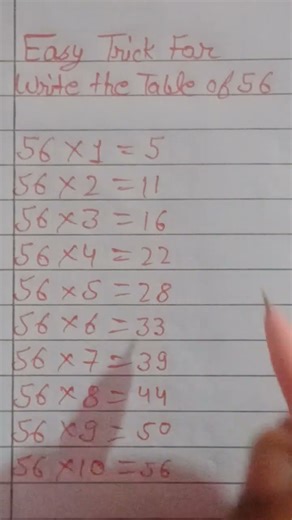 Easy Trick For
Write the Table of 56
56 × 1 = 5
56 × 2 = 11
56 × 3 = 16
56 × 4 = 22
56 × 5 = 28
56 × 6 = 33
56 × 7 = 39
56 × 8 = 44
56 × 9 = 50
56 × 10 = 56